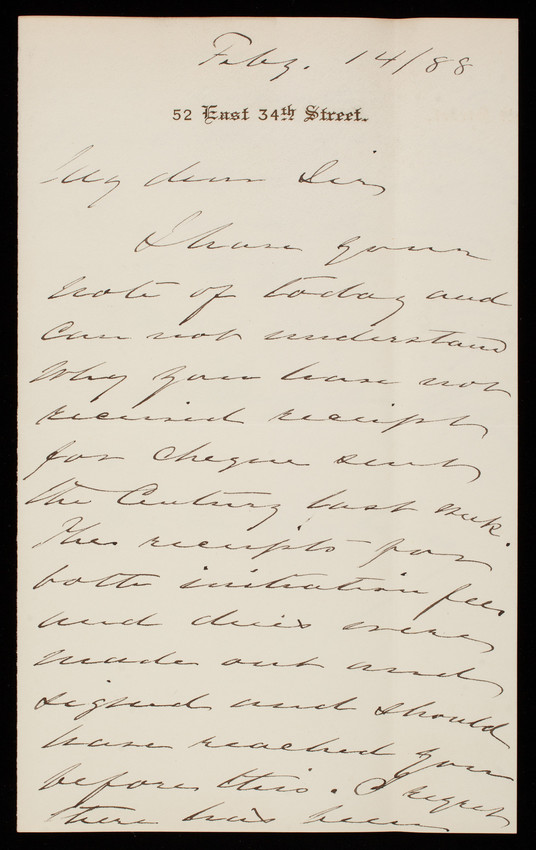 Feby. 14/88
52 East 34th Street.
My dear Sir,
I have your
note of today and
can not understand
why you have not
received receipt
for cheque sent
the Century last week.
The receipts for
both initiation fee
and dues were
made out and
signed and should
have reached you
before this. I regret
there has been